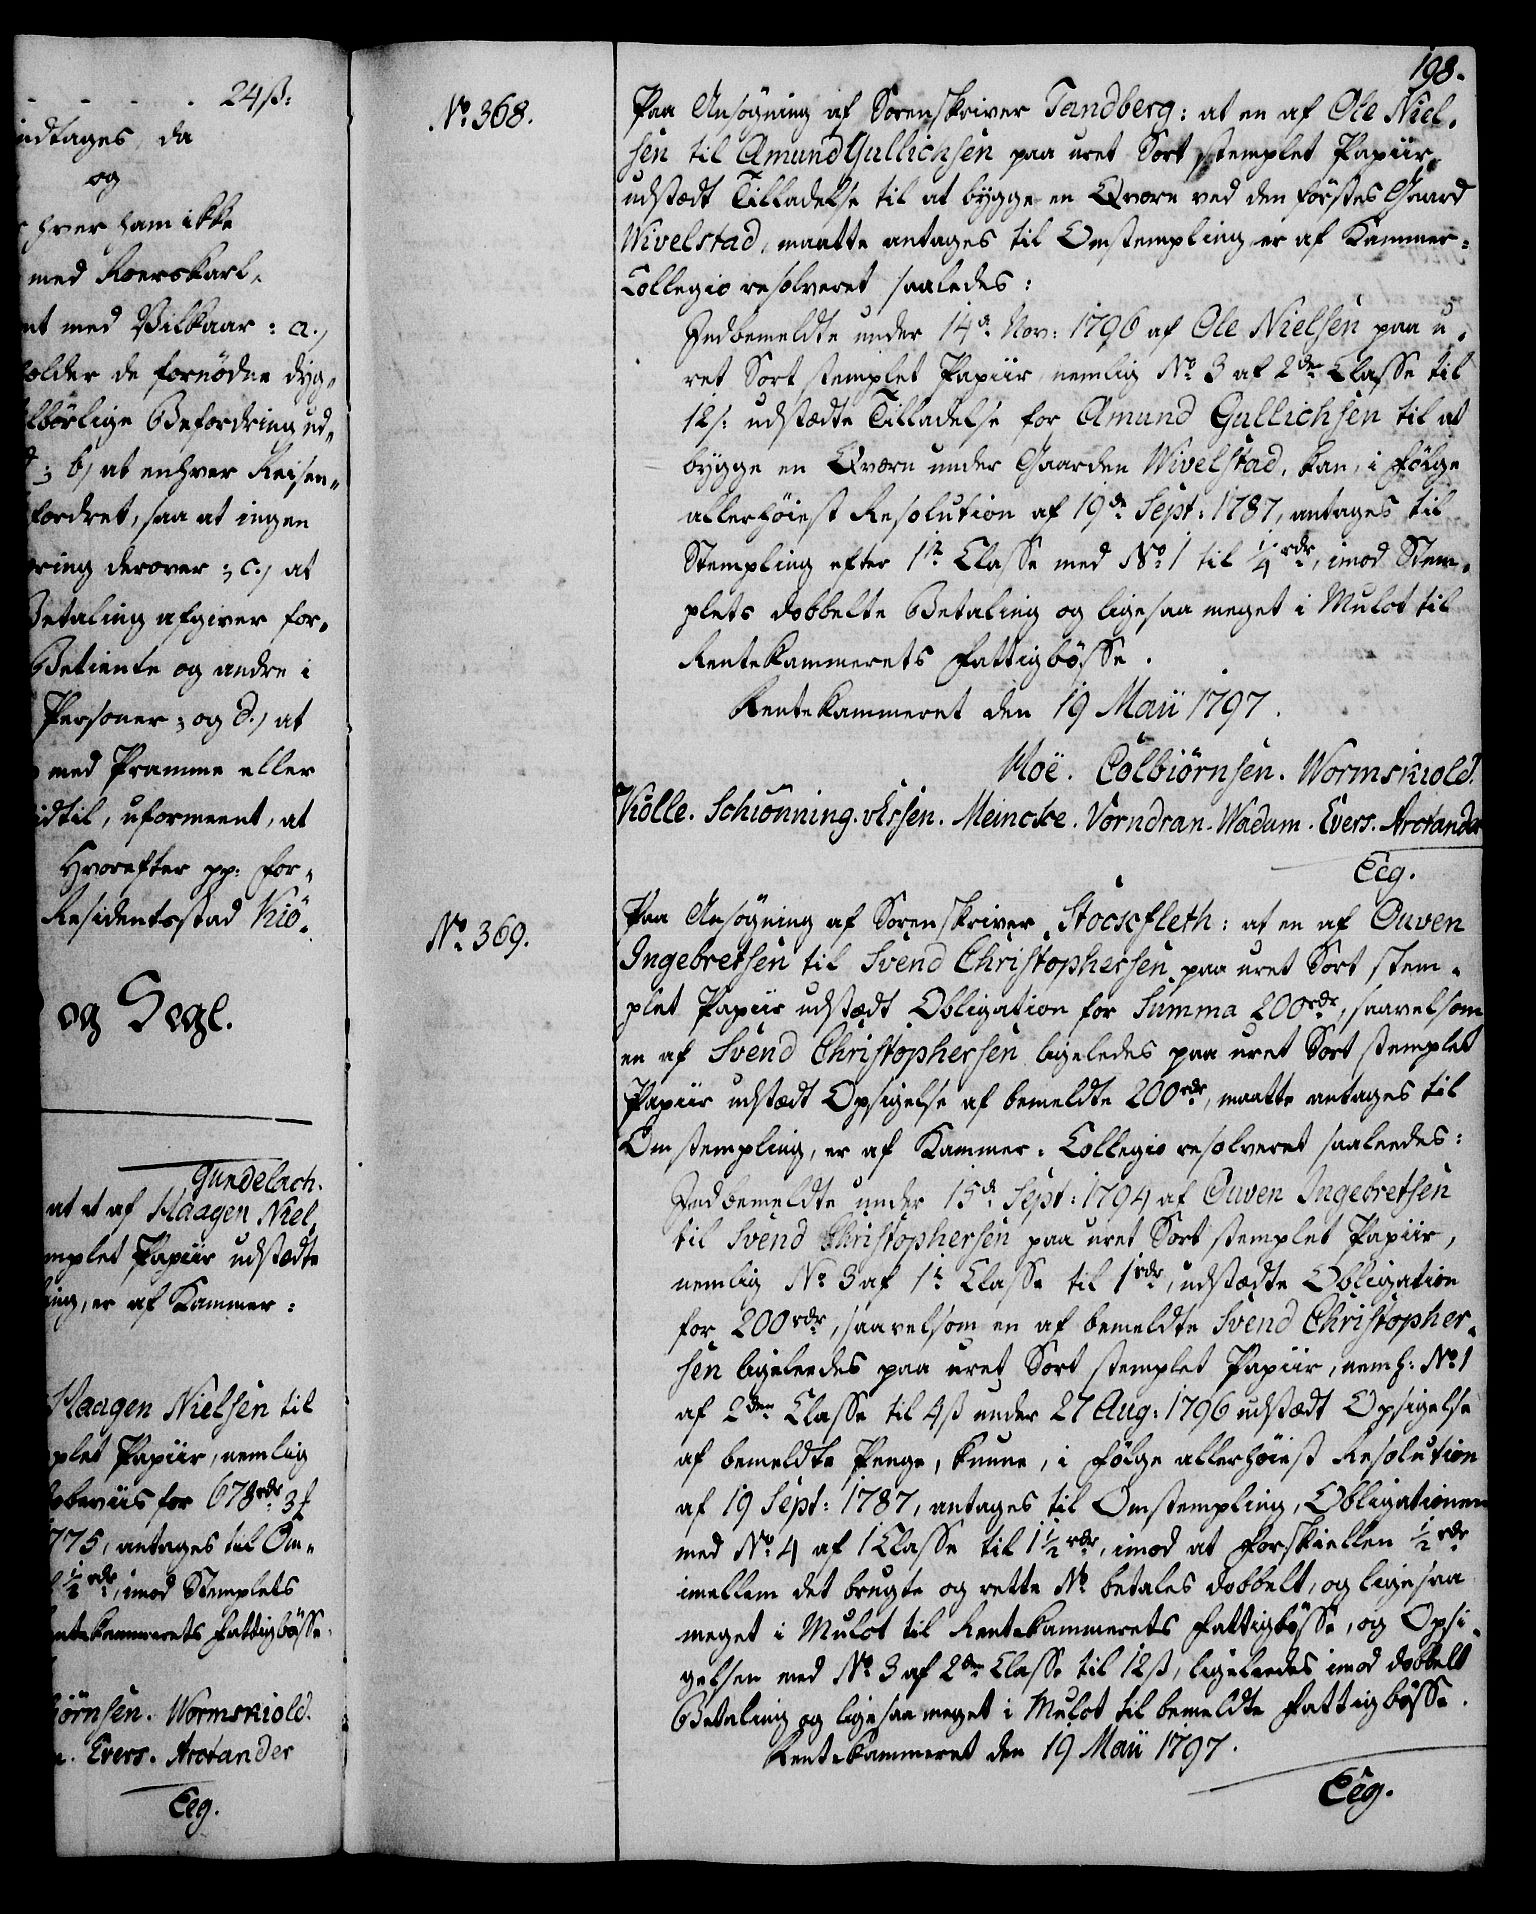 24ß:
indtages, da
og
hver ham ikke
med Roerskarl,
med Vilkaar: a.,
holder de fornødne dyg-
lbørlige Befordring ud-
; b, at enhver Reisen-
fordret, saa at ingen
ring derover; c., at
Betaling afgiver for-
Betiente og andre i
Personer; og d., at
med Pramme eller
idtil, uformeent, at
Hvorefter pp: for-
Residentsstad Kiö-
og Segl.
Gundelach.
at et af Haagen Niel-
mplet Papiir udstædte
ing, er af Kammer:
Haagen Nielsen til
plet Papiir, nemlig
obeviis for 678 rdr 3
775, antages til Om-
½ rdr, imod Stemplets
ntekammerets Fattigbösse.
iörnsen. Wormskiold.
Evers. Arctander
Eeg.
198.
No. 368.
Paa Ansögning af Sorenskriver Tandberg: at en af Ole Niel-
sen til Amund Gullichsen paa uret Sort stemplet Papiir
udstædt Tilladelse til at bygge en Qværn ved den förstes Gaard
Wivelstad, maatte antages til Omstempling er af Kammer-
Collegio resolveret saaledes:
Indbemeldte under 14d. Nov: 1796 af Ole Nielsen paa u-
ret Sort stemplet Papiir, nemlig No. 3 af 2den Classe til
12s: udstædte Tilladelse for Amund Gullichsen til at
bygge en Qværn under Gaarden Wivelstad, kan, i Fölge
allerhöiest Resolution af 19de Sept: 1787, antages til
Stempling efter 1te Classe med No. 1 til ¼ rdr, imod Stem-
plets dobbelte Betaling og ligesaa meget i Mulct til
Rentekammerets Fattigbösse.
Rentekammeret den 19 Maii 1797.
Moë. Colbiörnsen. Wormskiold.
Kölle. Schiönning. v Essen. Meincke. Vorndran. Wadum. Evers. Arctander
Eeg.
No. 369.
Paa Ansögning af Sorenskriver Stockfleth: at en af Ouven
Ingebretsen til Svend Christophersen paa uret Sort stem-
plet Papiir udstædt Obligation for Summa 200 rdr, saavelsom
en af Svend Christophersen ligeledes paa uret Sort stemplet
Papiir udstædt Opsigelse af bemeldte 200 rdr, maatte antages til
Omstempling, er af Kammer-Collegio resolveret saaleedes:
Indbemeldte under 15d. Sept: 1794 af Ouven Ingebretsen
til Svend Christophersen paa uret Sort stemplet Papiir,
nemlig No. 3 af 1te Classe til 1 rdr, udstædte Obligation
for 200 rdr, saavelsom en af bemeldte Svend Christopher-
sen ligeleedes paa uret Sort stemplet Papiir, neml: No. 1
af 2den Classe til 4ß under 27 Aug: 1796 udstædt Opsigelse
af bemeldte Penge, kunne, i Fölge allerhöiest Resolution
af 19 Sept: 1787, antages til Omstempling, Obligationen
med No. 4 af 1 Classe til 1½ rdr, imod at Forskiellen ½ rdr
imellem det brugte og rette No. betales dobbelt, og ligesaa
meget i Mulct til Rentekammerets Fattigbösse, og Opsi-
gelsen med No. 3 af 2den Classe til 12ß, ligeleedes imod dobbelt
Betaling og ligesaa meget i Mulct til bemeldte Fattigbösse.
Rentekammeret den 19 Maii 1797.
Eeg.